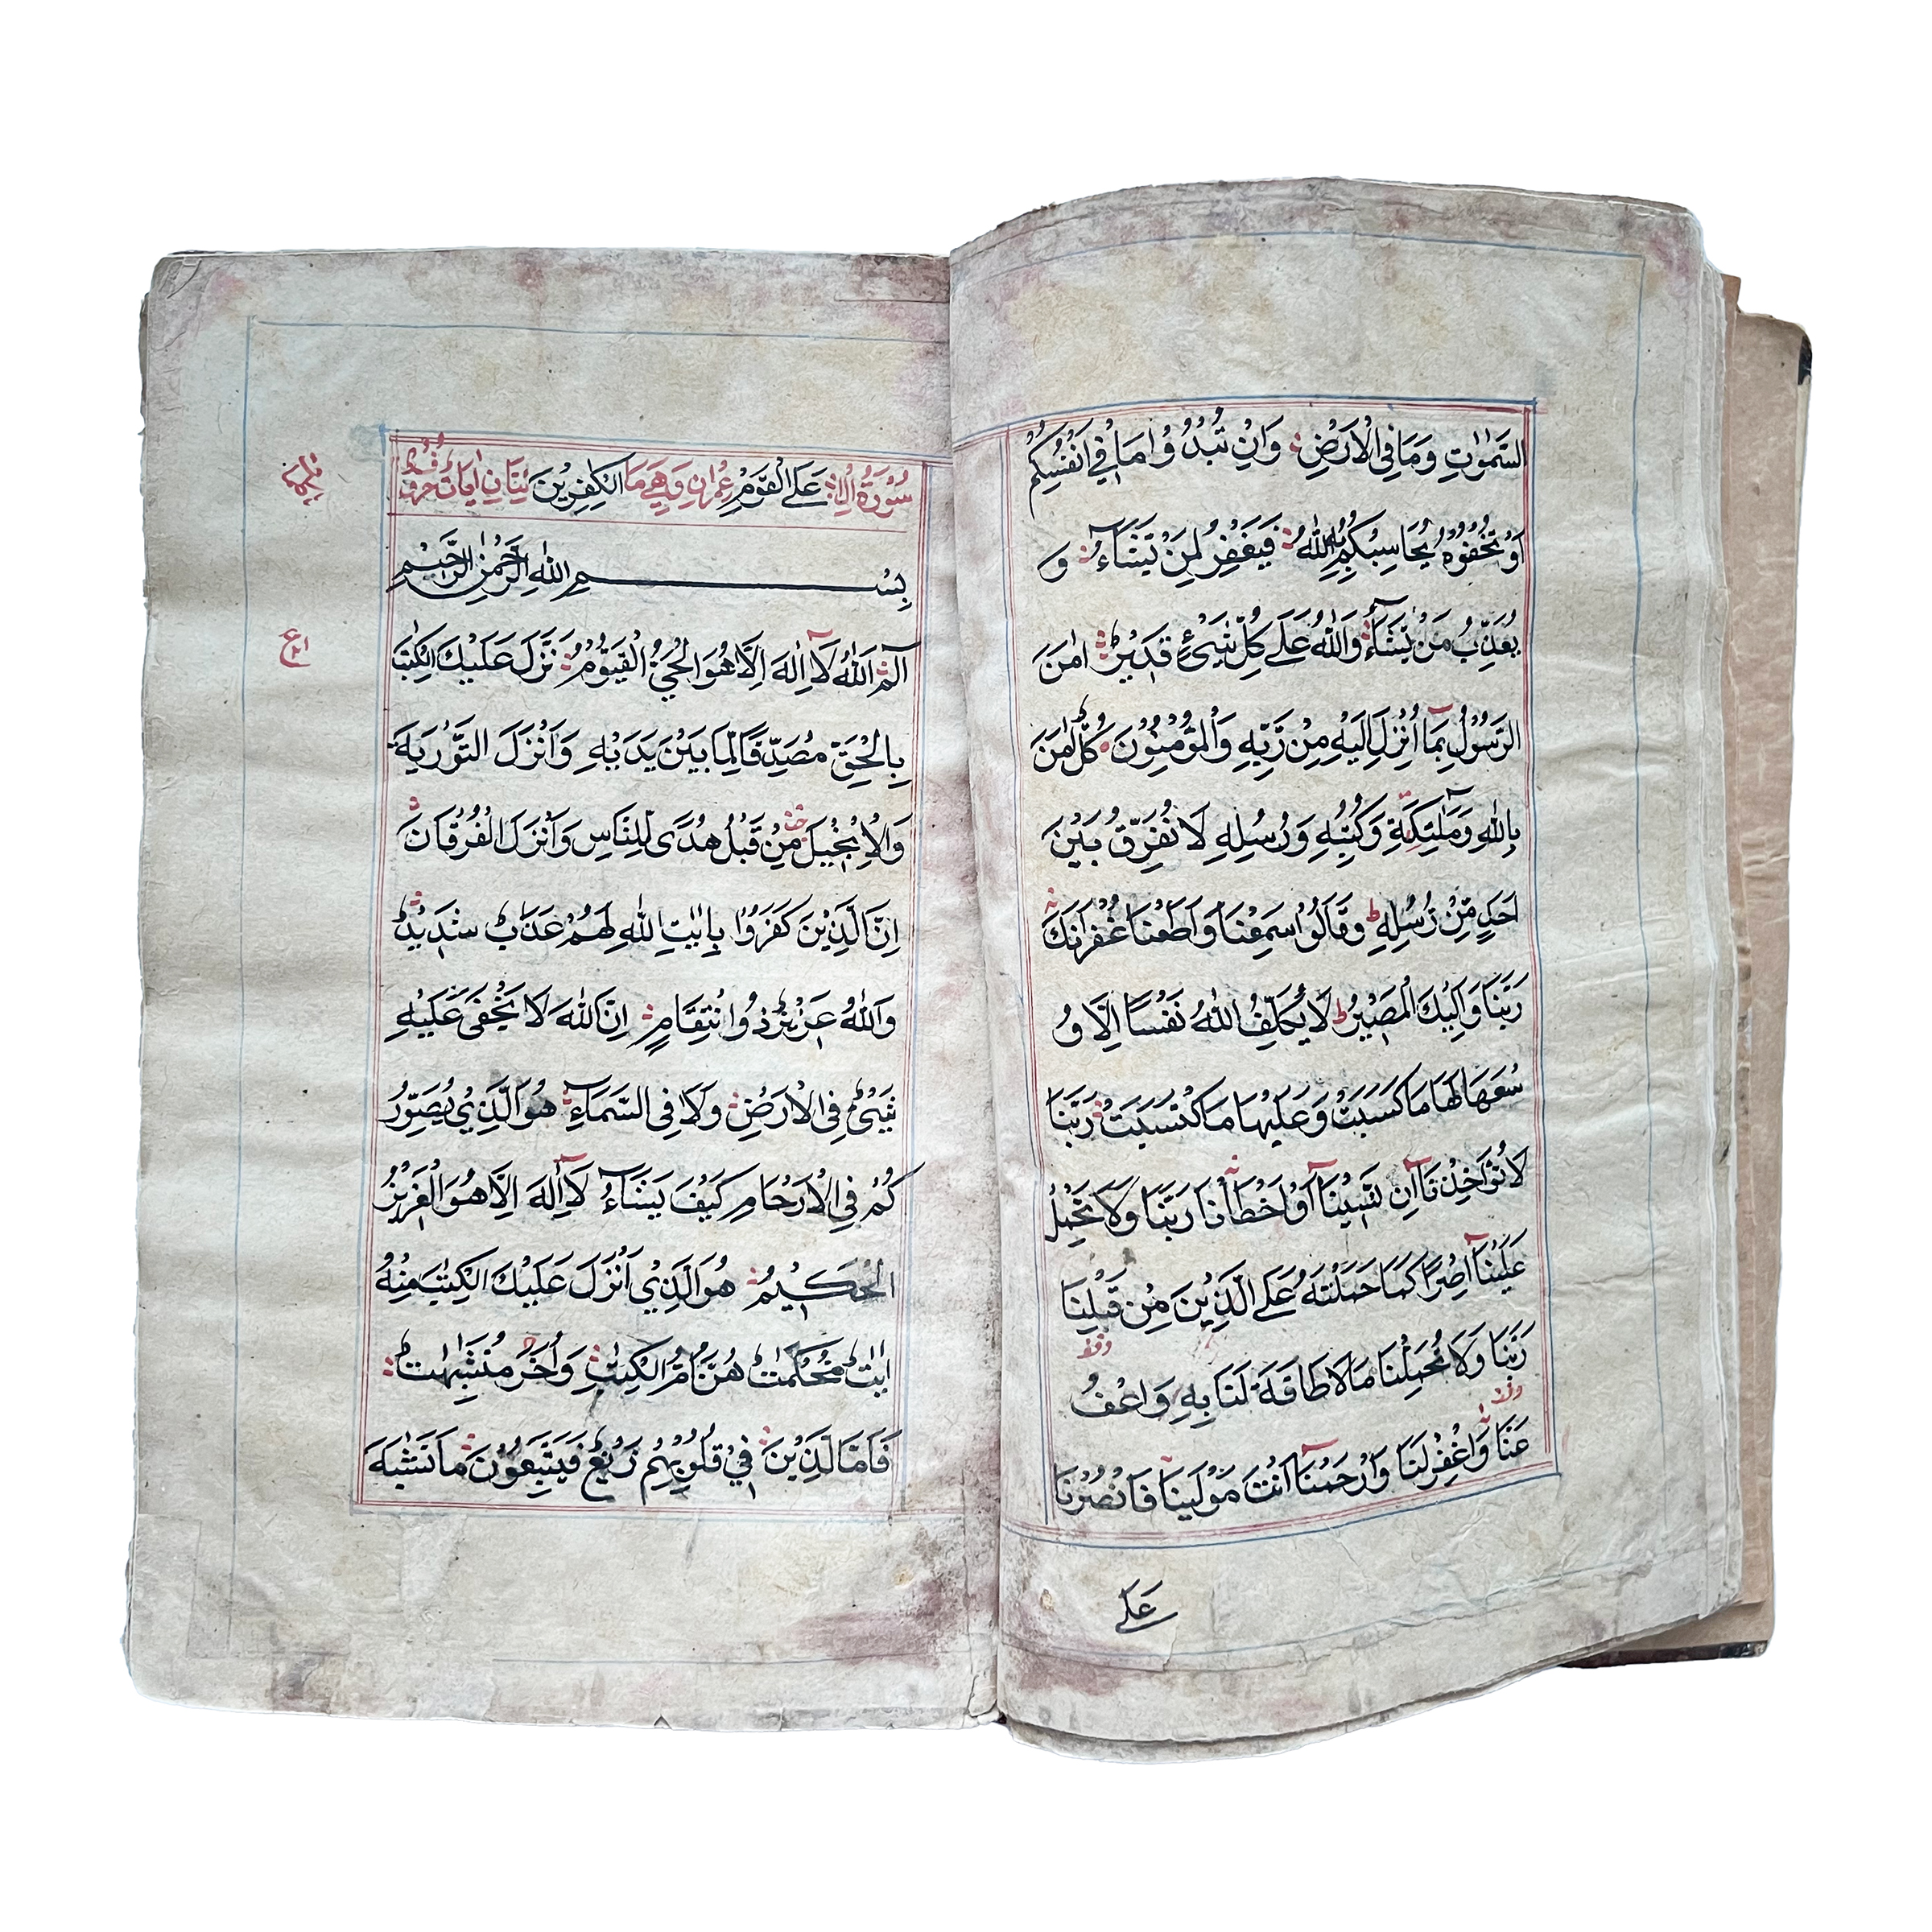 السَّمٰوٰتِ وَمَا فِي الْاَرْضِ وَاِنْ تُبْدُوْا مَا فِيْ اَنْفُسِكُمْ
اَوْ تُخْفُوْهُ يُحَاسِبْكُمْ بِهِ اللّٰهُ فَيَغْفِرُ لِمَنْ يَّشَآءُ وَ
يُعَذِّبُ مَنْ يَّشَآءُ وَاللّٰهُ عَلٰى كُلِّ شَيْءٍ قَدِيْرٌ اٰمَنَ
الرَّسُوْلُ بِمَآ اُنْزِلَ اِلَيْهِ مِنْ رَّبِّهٖ وَالْمُؤْمِنُوْنَ كُلٌّ اٰمَنَ
بِاللّٰهِ وَمَلٰٓئِكَتِهٖ وَكُتُبِهٖ وَرُسُلِهٖ لَا نُفَرِّقُ بَيْنَ
اَحَدٍ مِّنْ رُّسُلِهٖ وَقَالُوْا سَمِعْنَا وَاَطَعْنَا غُفْرَانَكَ
رَبَّنَا وَاِلَيْكَ الْمَصِيْرُ لَا يُكَلِّفُ اللّٰهُ نَفْسًا اِلَّا وُ
سْعَهَا لَهَا مَا كَسَبَتْ وَعَلَيْهَا مَا كْتَسَبَتْ رَبَّنَا
لَا تُؤَاخِذْنَآ اِنْ نَّسِيْنَآ اَوْ اَخْطَأْنَا رَبَّنَا وَلَا تَحْمِلْ
عَلَيْنَآ اِصْرًا كَمَا حَمَلْتَهٗ عَلَى الَّذِيْنَ مِنْ قَبْلِنَا
رَبَّنَا وَلَا تُحَمِّلْنَا مَا لَا طَاقَةَ لَنَا بِهٖ وَاعْفُ
عَنَّا وَاغْفِرْلَنَا وَارْحَمْنَآ اَنْتَ مَوْلٰينَا فَانْصُرْنَا
عَلَى
سُوْرَةُ اٰلِ عَلَى الْقَوْمِ عِمْرَانَ وَهِيَ مَا الْكٰفِرِيْنَ
بِسْمِ اللّٰهِ الرَّحْمٰنِ الرَّحِيْمِ
الٓمّٓ اَللّٰهُ لَآ اِلٰهَ اِلَّا هُوَ الْحَيُّ الْقَيُّوْمُ نَزَّلَ عَلَيْكَ الْكِتٰبَ
بِالْحَقِّ مُصَدِّقًا لِّمَا بَيْنَ يَدَيْهِ وَاَنْزَلَ التَّوْرٰيةَ
وَالْاِنْجِيْلَ مِنْ قَبْلُ هُدًى لِّلنَّاسِ وَاَنْزَلَ الْفُرْقَانَ
اِنَّ الَّذِيْنَ كَفَرُوْا بِاٰيٰتِ اللّٰهِ لَهُمْ عَذَابٌ شَدِيْدٌ
وَاللّٰهُ عَزِيْزٌ ذُوانْتِقَامٍ اِنَّ اللّٰهَ لَا يَخْفٰى عَلَيْهِ
شَيْءٌ فِي الْاَرْضِ وَلَا فِي السَّمَآءِ هُوَ الَّذِيْ يُصَوِّرُ
كُمْ فِي الْاَرْحَامِ كَيْفَ يَشَآءُ لَآ اِلٰهَ اِلَّا هُوَ الْعَزِيْزُ
الْحَكِيْمُ هُوَ الَّذِيْ اَنْزَلَ عَلَيْكَ الْكِتٰبَ مِنْهُ
اٰيٰتٌ مُّحْكَمٰتٌ هُنَّ اُمُّ الْكِتٰبِ وَاُخَرُ مُتَشٰبِهٰتٌ
فَاَمَّا الَّذِيْنَ فِيْ قُلُوْبِهِمْ زَيْغٌ فَيَتَّبِعُوْنَ مَا تَشَابَهَ